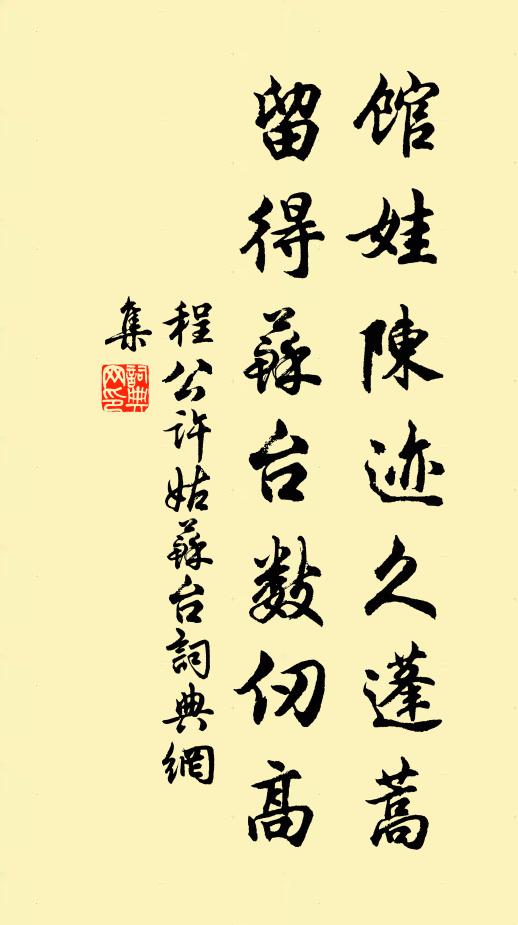 館娃陳迹久蓬蒿
留得蘇台數仞高
程公許姑蘇台詞典網
集
詞典网印